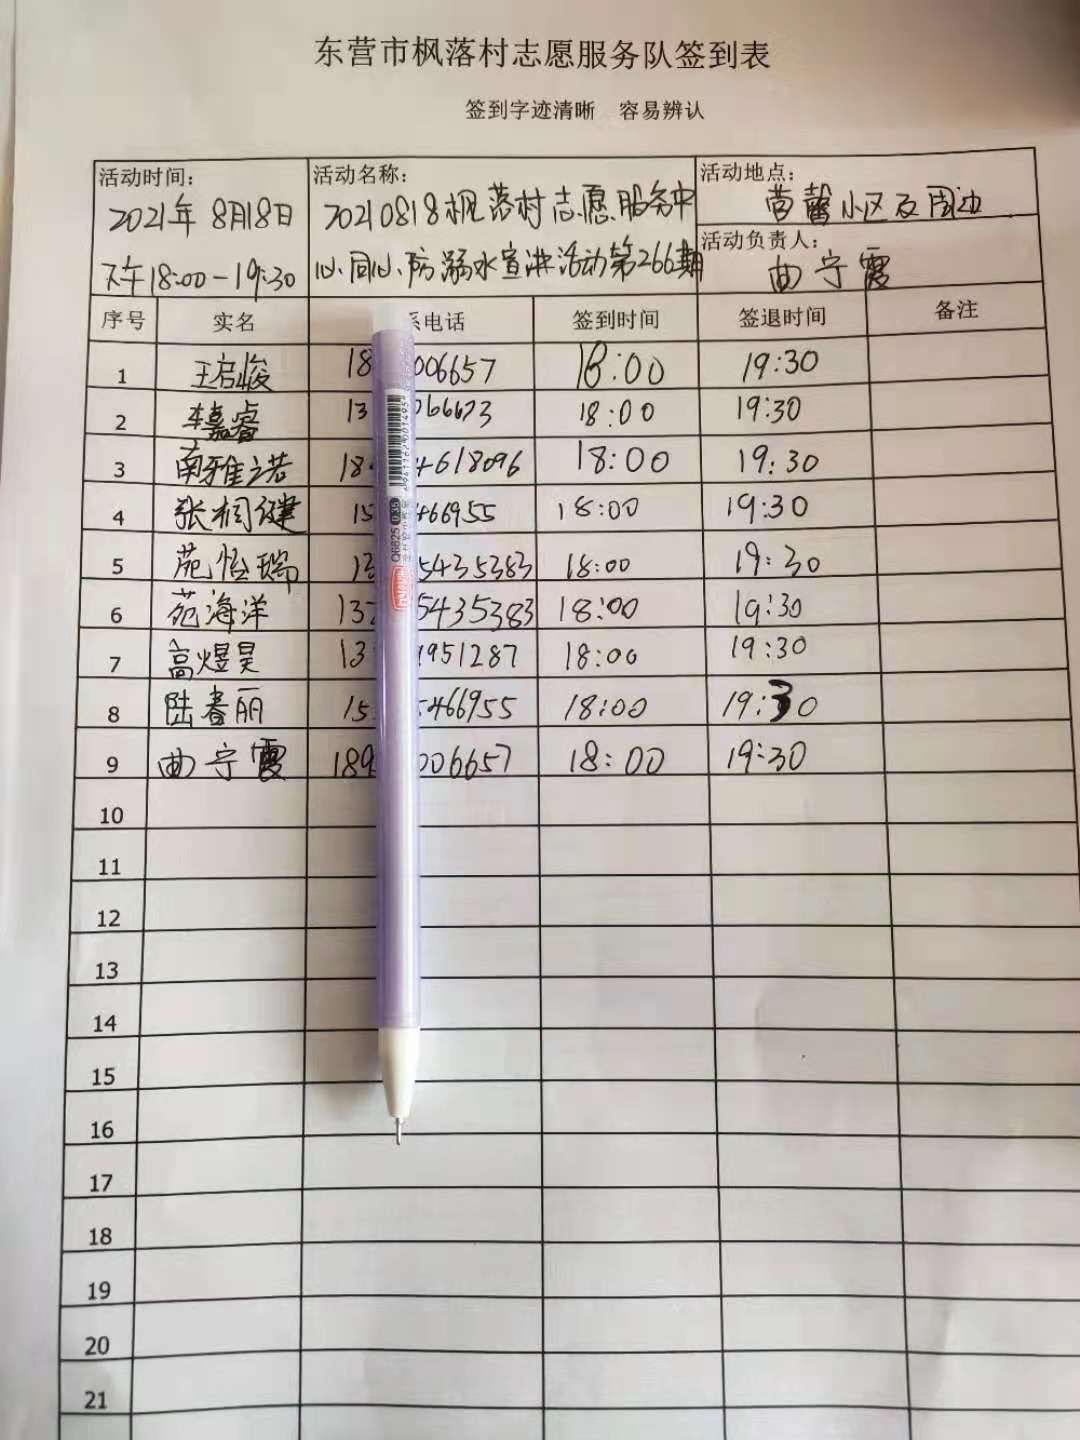 东营市枫落村志愿服务队签到表
签到字迹清晰 容易辨认
活动时间: 活动名称: 活动地点:
2021年8月18日 20210818枫落村志愿服务中 营馨小区及周边
下午18:00-19:30 心同心防溺水宣讲活动第266期 活动负责人: 曲宁霞
序号 实名 系电话 签到时间 签退时间 备注
1 王启峻 18 006657 18:00 19:30
2 李嘉睿 13 066673 18:00 19:30
3 南雅之诺 18 4618096 18:00 19:30
4 张桐健 15 466955 18:00 19:30
5 苑恒瑞 13 5435383 18:00 19:30
6 苑海洋 137 5435383 18:00 19:30
7 高煜昊 13 951287 18:00 19:30
8 陆春丽 15 5466955 18:00 19:30
9 曲宁霞 189 006657 18:00 19:30
10
11
12
13
14
15
16
17
18
19
20
21